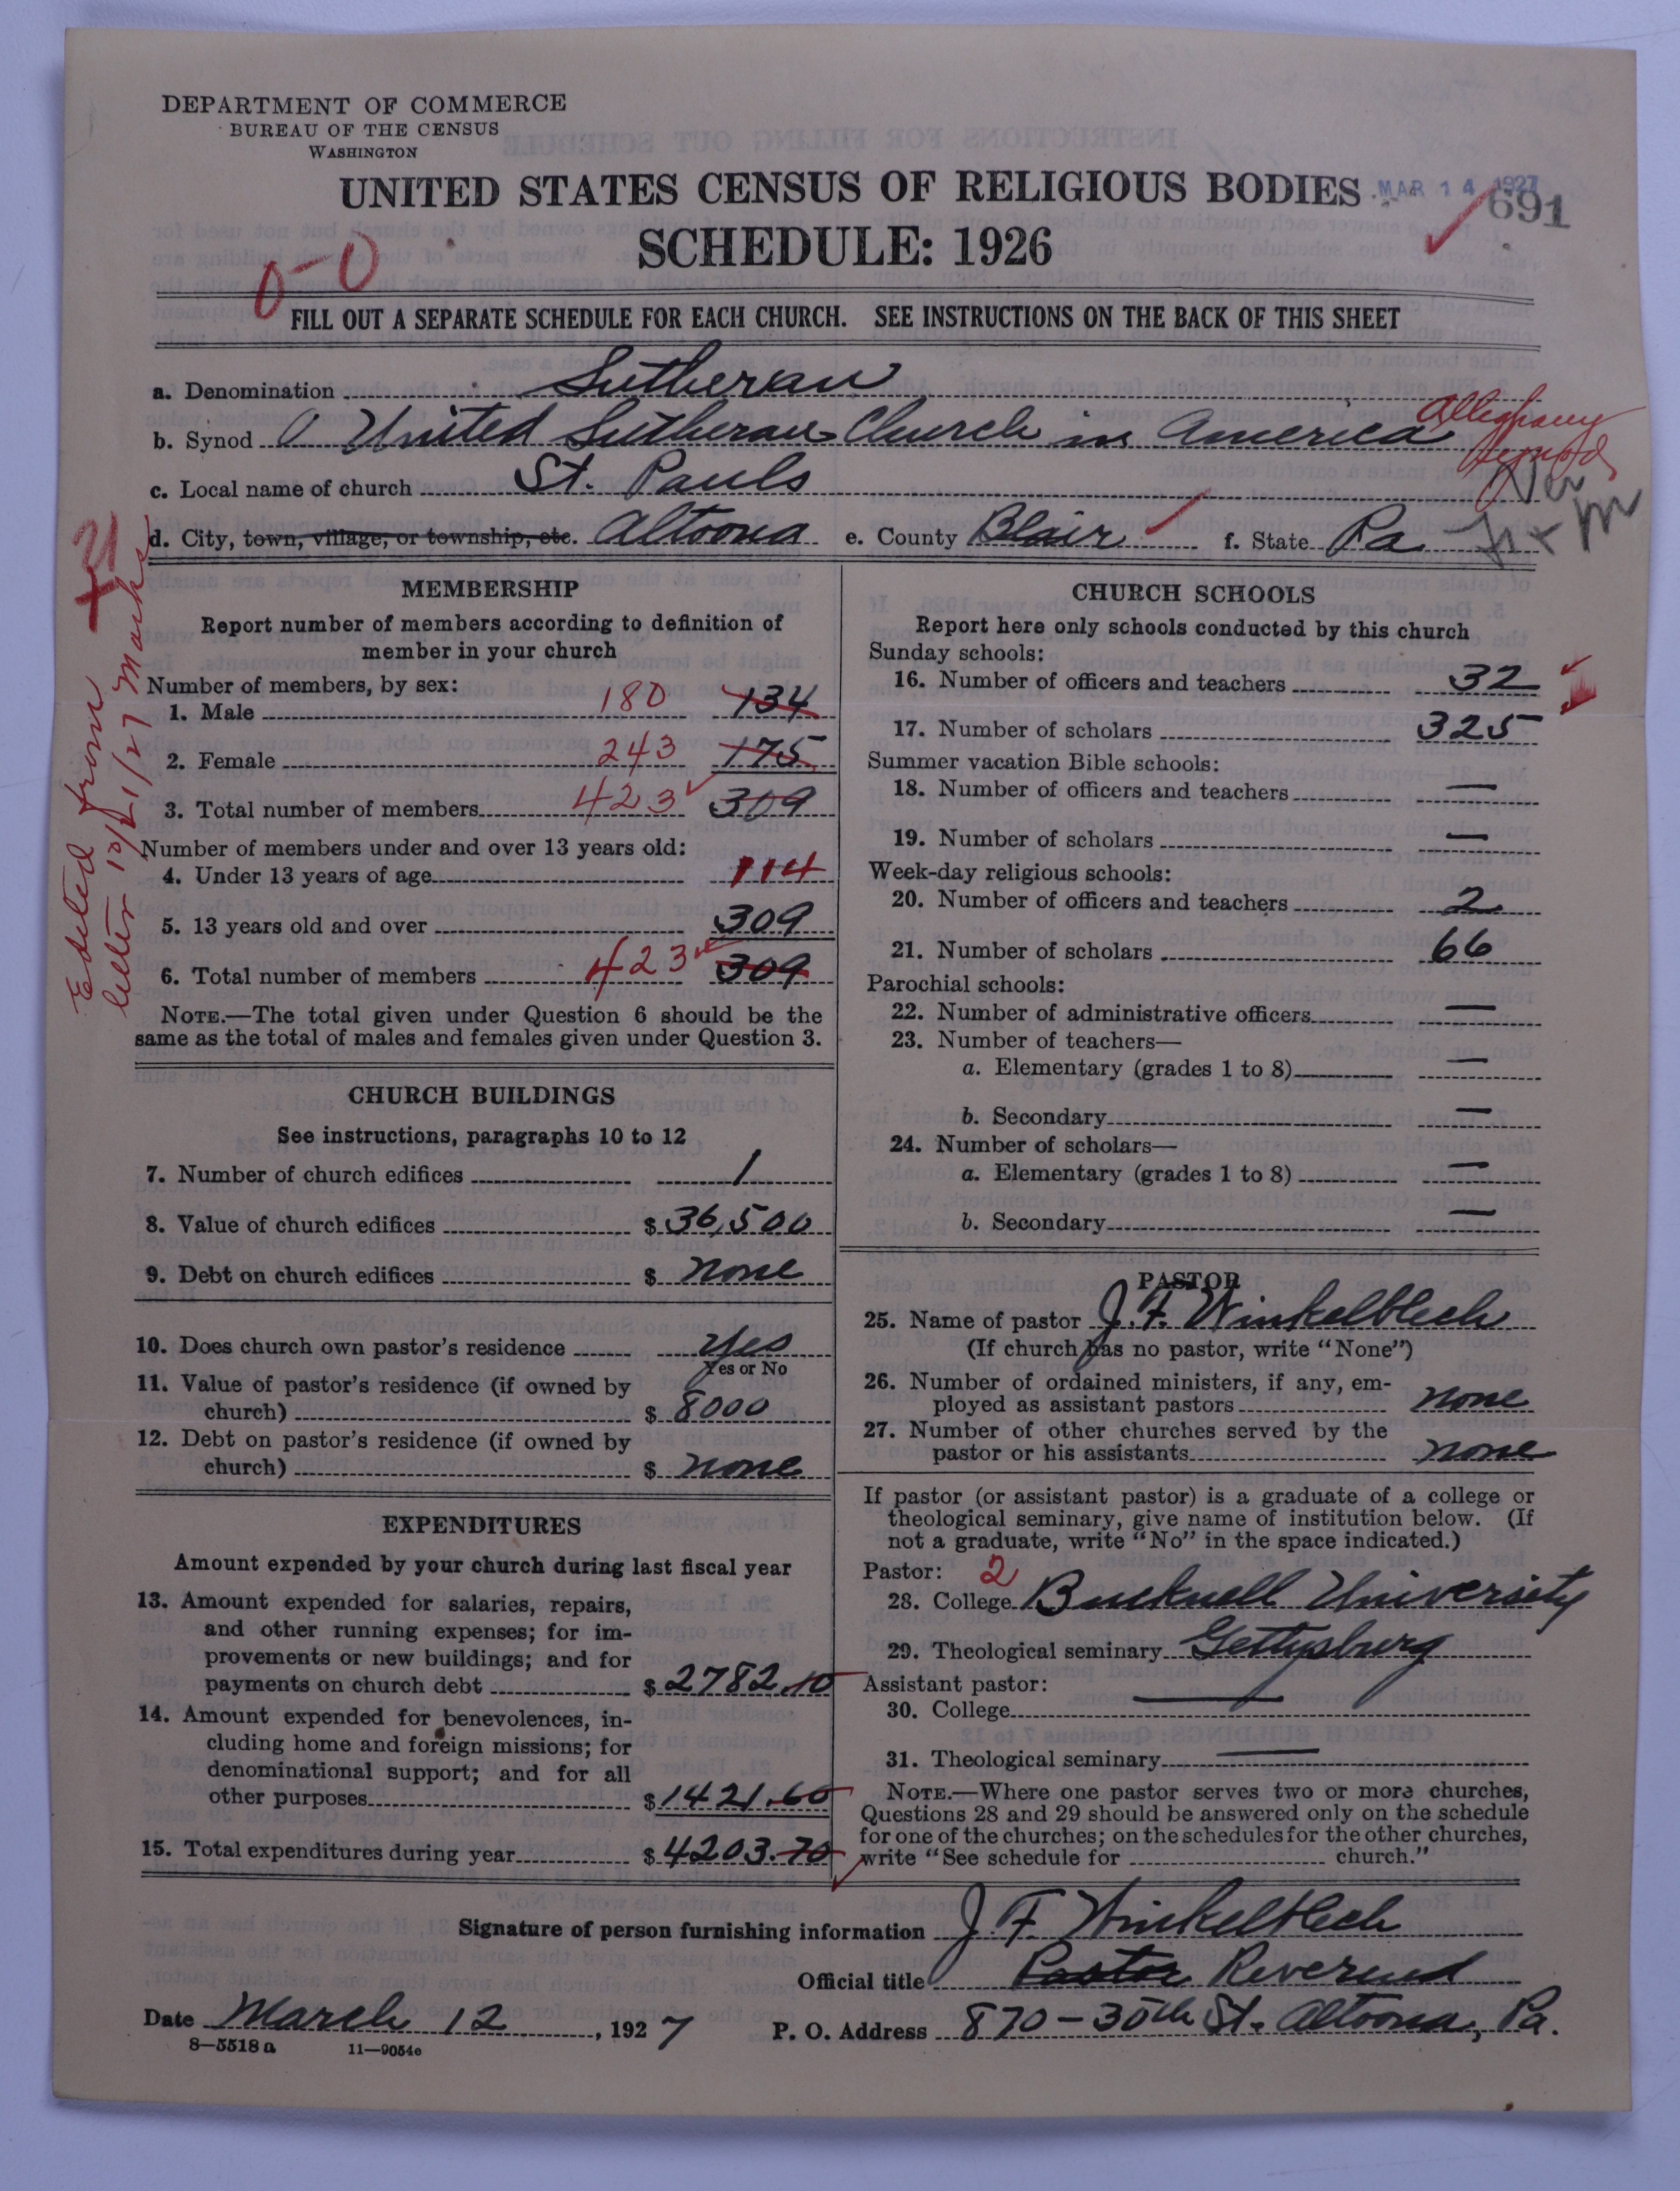 DEPARTMENT OF COMMERCE
BUREAU OF THE CENSUS
WASHINGTON
UNITED STATES CENSUS OF RELIGIOUS BODIES
MAR 14 1927
691
SCHEDULE: 1926
0-0
FILL OUT A SEPARATE SCHEDULE FOR EACH CHURCH. SEE INSTRUCTIONS ON THE BACK OF THIS SHEET
a. Denomination Lutheran
b. Synod United Lutheran Church in America Alleghany Synod
c. Local name of church St. Pauls
d. City, town, village, or township, etc. Altoona e. County Blair f. State Pa
Edited from
letter 10/21/27 Marks
MEMBERSHIP
Report number of members according to definition of
member in your church
Number of members, by sex:
1. Male 180 134
2. Female 243 175
3. Total number of members 423 309
Number of members under and over 13 years old:
4. Under 13 years of age 114
5. 13 years old and over 309
6. Total number of members 423 309
NOTE.—The total given under Question 6 should be the
same as the total of males and females given under Question 3.
CHURCH BUILDINGS
See instructions, paragraphs 10 to 12
7. Number of church edifices 1
8. Value of church edifices $ 36,500
9. Debt on church edifices $ none
10. Does church own pastor's residence Yes
Yes or No
11. Value of pastor's residence (if owned by
church) $ 8000
12. Debt on pastor's residence (if owned by
church) $ none
EXPENDITURES
Amount expended by your church during last fiscal year
13. Amount expended for salaries, repairs,
and other running expenses; for im-
provements or new buildings; and for
payments on church debt $ 2782.10
14. Amount expended for benevolences, in-
cluding home and foreign missions; for
denominational support; and for all
other purposes $ 1421.60
15. Total expenditures during year $ 4203.70
CHURCH SCHOOLS
Report here only schools conducted by this church
Sunday schools:
16. Number of officers and teachers 32
17. Number of scholars 325
Summer vacation Bible schools:
18. Number of officers and teachers —
19. Number of scholars —
Week-day religious schools:
20. Number of officers and teachers 2
21. Number of scholars 66
Parochial schools:
22. Number of administrative officers —
23. Number of teachers—
a. Elementary (grades 1 to 8) —
b. Secondary —
24. Number of scholars—
a. Elementary (grades 1 to 8) —
b. Secondary —
PASTOR
25. Name of pastor J. F. Winkelblech
(If church has no pastor, write "None")
26. Number of ordained ministers, if any, em-
ployed as assistant pastors none
27. Number of other churches served by the
pastor or his assistants none
If pastor (or assistant pastor) is a graduate of a college or
theological seminary, give name of institution below. (If
not a graduate, write "No" in the space indicated.)
Pastor: 2
28. College Bucknell University
29. Theological seminary Gettysburg
Assistant pastor:
30. College —
31. Theological seminary —
NOTE.—Where one pastor serves two or more churches,
Questions 28 and 29 should be answered only on the schedule
for one of the churches; on the schedules for the other churches,
write "See schedule for church."
Signature of person furnishing information J. F. Winkelblech
Official title Pastor Reverend
Date March 12, 1927 P. O. Address 870-30th St. Altoona, Pa.
8—5518a 11—9054e